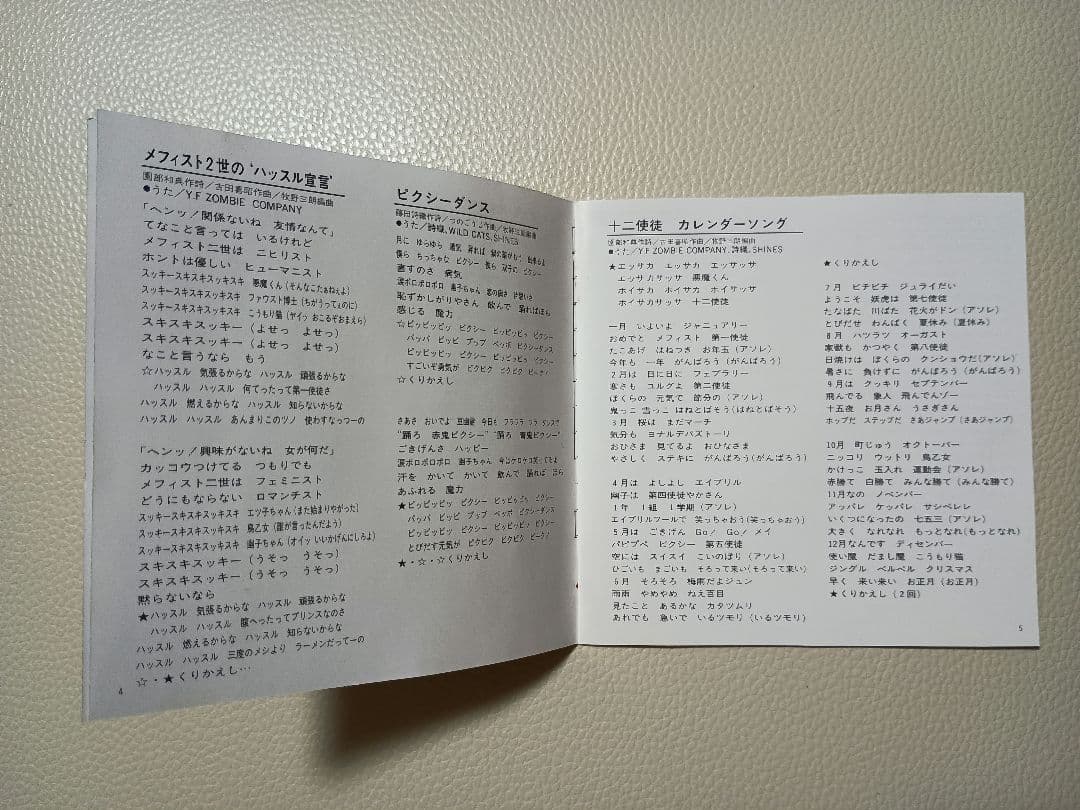 メフィスト2世の“ハッスル宣言”
園部和典作詩/古田喜昭作曲/牧野三朗編曲
●うた/Y.F ZOMBIE COMPANY
「ヘンッ!関係ないね 友情なんて」
てなこと言っては いるけれど
メフィスト二世は ニヒリスト
ホントは優しい ヒューマニスト
スッキースキスキスッキスキ 悪魔くん(そんなこたぁねぇよ)
スッキースキスキスキスキスキ ファウスト博士(ちがうってぇのに)
スッキースキスキスキスキスキ こうもり猫(ヤイッ おこるぞおまえら)
スキスキスッキー(よせっ よせっ)
スキスキスッキー(よせっ よせっ)
なこと言うなら もう
☆ハッスル 気張るからな ハッスル 頑張るからな
ハッスル ハッスル 何てったって第一使徒さ
ハッスル 燃えるからな ハッスル 知らないからな
ハッスル ハッスル あんまりこのツノ 使わすなっつーの
「ヘンッ!興味がないね 女が何だ」
カッコウつけてる つもりでも
メフィスト二世は フェミニスト
どうにもならない ロマンチスト
スッキースキスキスキスキスキ エツ子ちゃん(また始まりやがった)
スッキースキスキスキスキスキ 鳥乙女(誰が言ったんだよう)
スッキースキスキスキスキスキ 幽子ちゃん(オイッ いいかげんにしろよ)
スキスキスッキー(うそっ うそっ)
スキスキスッキー(うそっ うそっ)
黙らないなら
★ハッスル 気張るからな ハッスル 頑張るからな
ハッスル ハッスル 腹へったってプリンスなのさ
ハッスル 燃えるからな ハッスル 知らないからな
ハッスル ハッスル 三度のメシより ラーメンだってーの
☆・★くりかえし…
4
ピクシーダンス
●うた/詩織、WILD CATS、SHINES
月に ゆらゆら
僕ら ちっちゃな ピクシー 僕ら 双子の ピクシー
書すのさ 病気
涙ポロポロポロ
恥ずかしがりやさん 飲んで 踊ればほら
感じる 魔力
☆ピッピッピッ ピクシー ピッピッピッ ピクシー
パッパ ピッピ プップ ペッポ ピクシーダンス
ピッピッピッ ピクシー ピッピッピッ ピクシー
すごいぞ勇気が ピクピク ピクピク ピークッ
☆くりかえし
さあさ おいでよ
“踊ろ 赤鬼ピクシー”“踊ろ 青鬼ピクシー”
ごきげんさ ハッピー
涙ポロポロポロ 幽子ちゃん 今はケロケロ笑ってるよ
汗を かいて かいて 飲んで 踊れば ほら
あふれる 魔力
★ピッピッピッ ピクシー ピッピッピッ ピクシー
パッパ ピッピ プップ ペッポ ピクシーダンス
ピッピッピッ ピクシー ピッピッピッ ピクシー
とびだす元気が ピクピク ピクピク ピークッ
★・☆・☆くりかえし
十二使徒 カレンダーソング
園部和典作詩/古田喜昭作曲/牧野三朗編曲
●うた/Y.F ZOMBIE COMPANY、詩織、SHINES
★エッサカ エッサカ エッサッサ
エッサカサッサ 悪魔くん
ホイサカ ホイサカ ホイサッサ
ホイサカサッサ 十二使徒
一月 いよいよ ジャニュアリー
おめでと メフィスト 第一使徒
たこあげ はねつき お年玉(アソレ)
今年も 一年 がんばろう(がんばろう)
2月は 日に日に フェブラリー
寒さも ユルグよ 第二使徒
ぼくらの 元気で 節分の(アソレ)
鬼っこ 雪っこ はねとばそう(はねとばそう)
3月 桜は まだマーチ
気分も ヨナルデパズトーリ
おひさま 見てるよ おひなさま
やさしく ステキに がんばろう(がんばろう)
4月は よしよし エイプリル
幽子は 第四使徒やかさん
1年 1組 1学期(アソレ)
エイプリルフールで 笑っちゃおう(笑っちゃおう)
5月は ごきげん Go! Go! メイ
パピプペ ピクシー 第五使徒
空には スイスイ こいのぼり(アソレ)
ひごいも まごいも そろって来い(そろって来い)
6月 そろそろ 梅雨だよジュン
雨雨 やめやめ ねえ百目
見たこと あるかな カタツムリ
あれでも 急いで いるツモリ(いるツモリ)
★くりかえし
7月 ピチピチ ジュライだい
ようこそ 妖虎は 第七使徒
たなばた 川ばた 花火がドン(アソレ)
とびだせ わんぱく 夏休み(夏休み)
8月 ハツラツ オーガスト
家獣も かつやく 第八使徒
日焼けは ぼくらの クンショウだ(アソレ)
暑さに 負けずに がんばろう(がんばろう)
9月は クッキリ セプテンバー
飛んでる 象人 飛んでんゾー
十五夜 お月さん うさぎさん
ホップだ ステップだ さあジャンプ(さあジャンプ)
10月 町じゅう オクトーバー
ニッコリ ウットリ 鳥乙女
かけっこ 玉入れ 運動会(アソレ)
赤勝て 白勝て みんな勝て(みんな勝て)
11月なの ノベンバー
アッパレ ケッパレ サシペレレ
いくつになったの 七五三(アソレ)
大きく なれなれ もっとなれ(もっとなれ)
12月なんです ディセンバー
使い魔 だまし魔 こうもり猫
ジングル ベルベル クリスマス
早く 来い来い お正月(お正月)
★くりかえし(2回)
5